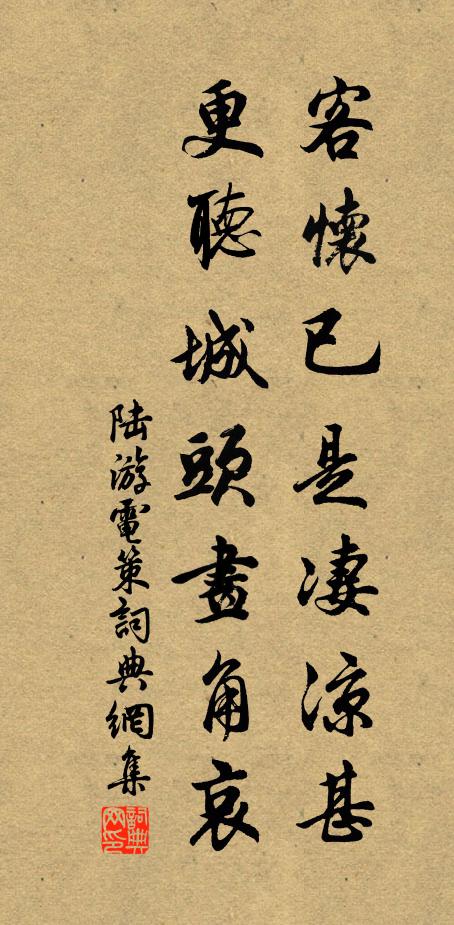 客懷已是凄涼甚
更聽城頭畫角哀
陆游電策詞典網集
詞典
网印